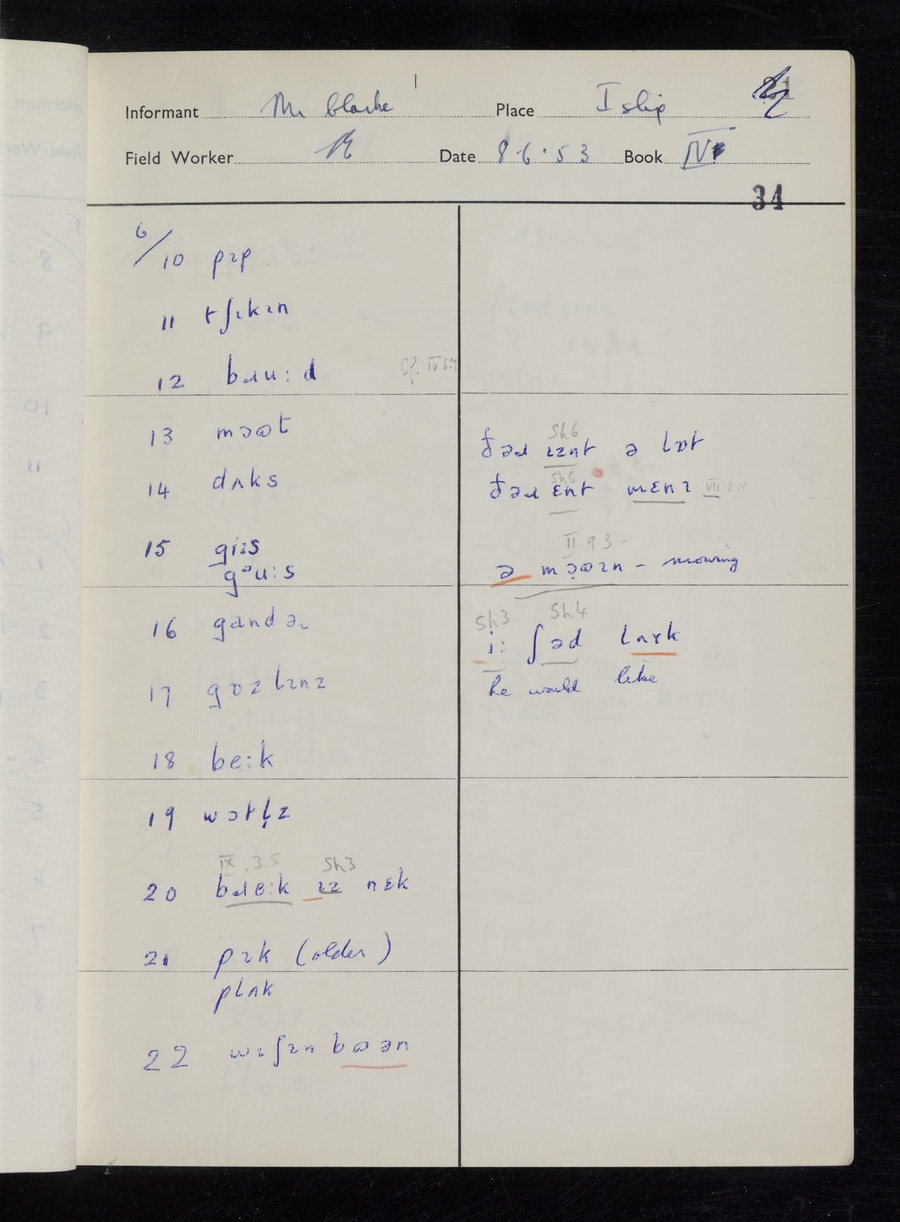 Informant Mr Clarke Place Islip
Field Worker Date 8·6·53 Book IV
34
6/10 pɪp
11 tʃɪkɪn
12 bɹuːd Cf. IV.6.4
13 mɔɷt
14 dʌks
15 giːs
gᵊuːs
16 gandəɹ
17 gɒzlɪnz
18 beːk
19 wɔtl̩z
IX.3.5 Sh3
20 bɹeːk ɪz nɛk
21 pɪk (older)
plʌk
22 wɪʃɪn bɷən
Sh6
ðəɹ ɪznt ə lɒt
Sh6
ðəɹ ɛnt mɛnɪ VII.8.11
II 9 3 -
ə mɔ̣ɷɪn - mowing
Sh3 Sh4
iː ʃəd lʌɪk
he would like